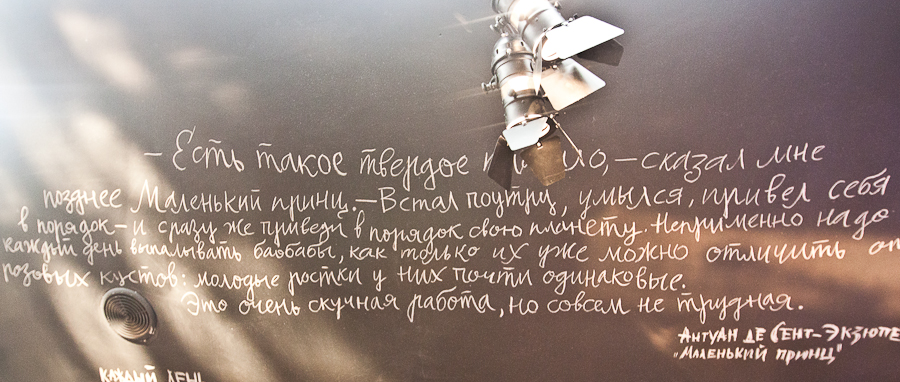 – Есть такое твердое ло, – сказал мне
позднее Маленький принц. – Встал поутру, умылся, привел себя
в порядок – и сразу же приведи в порядок свою планету. Неприменно надо
каждый день выпалывать баобабы, как только их уже можно отличить от
розовых кустов: молодые ростки у них почти одинаковые.
Это очень скучная работа, но совсем не трудная.
Антуан де Сент-Экзюпе
"Маленький принц"
каждый день